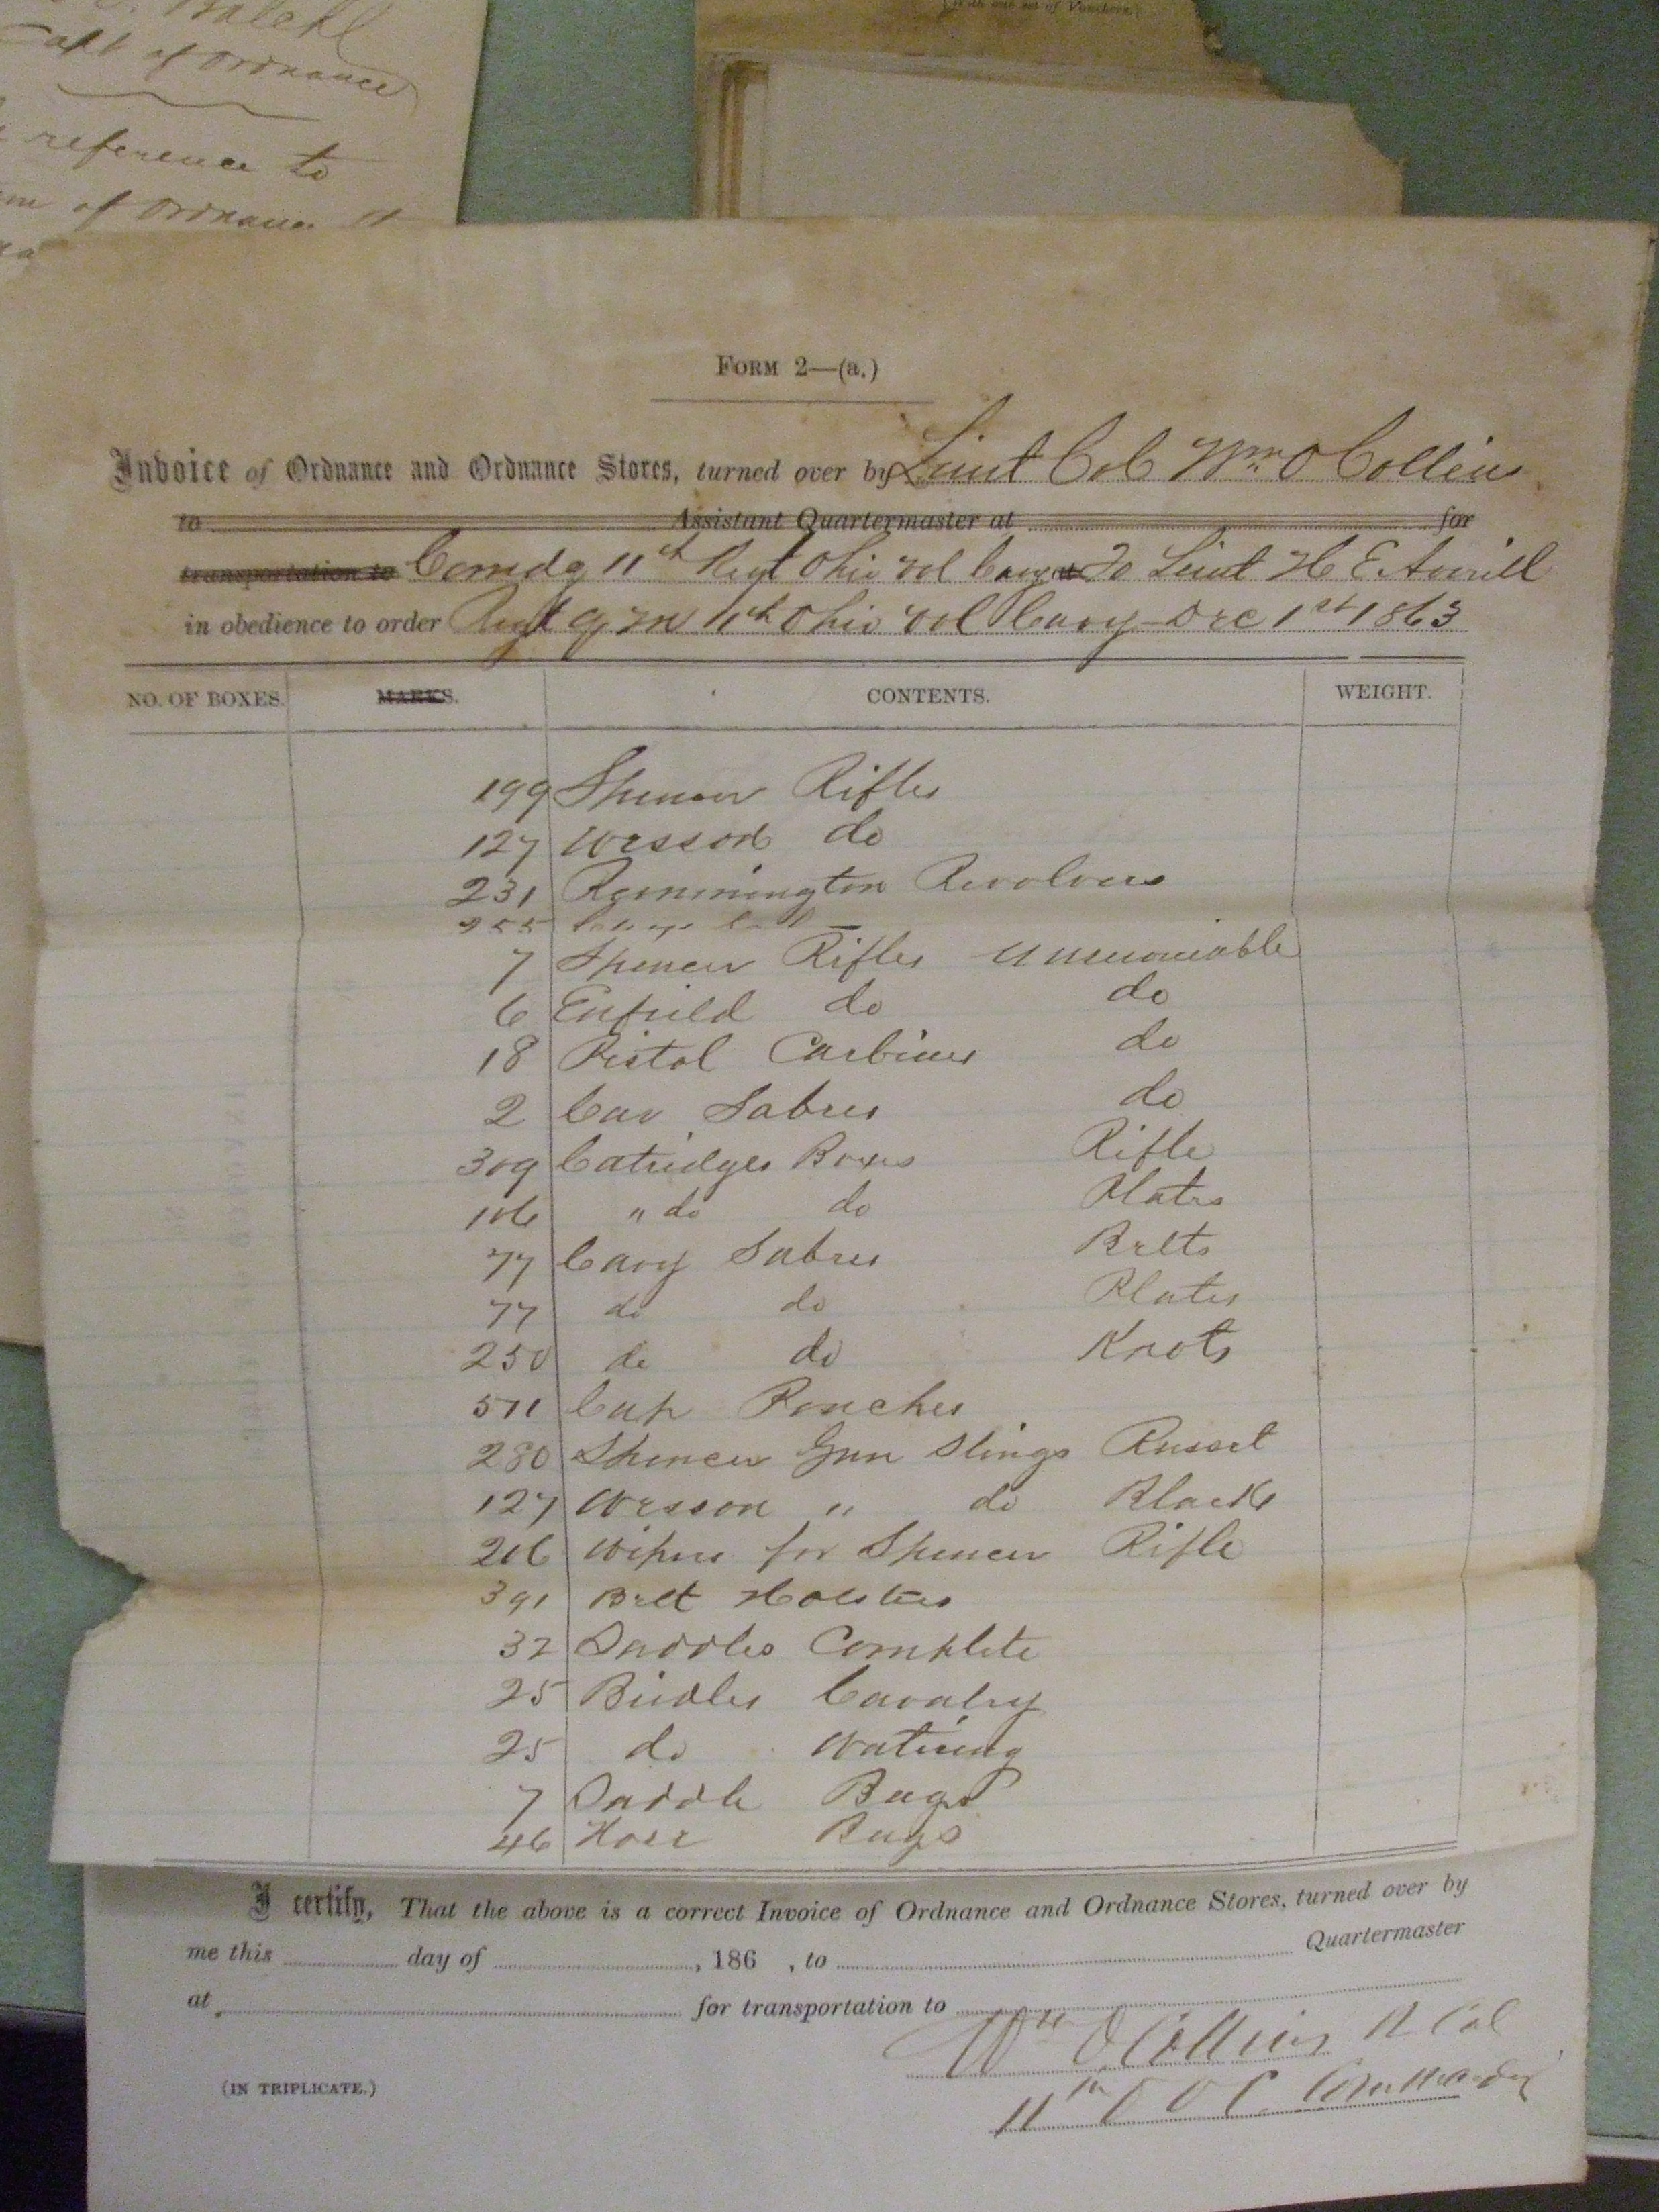 Capt of Ordnance
reference to
of Ordnance
(With one set of Vouchers.)
FORM 2—(a.)
Invoice of Ordnance and Ordnance Stores, turned over by Lieut Col Wm O Collins
to Assistant Quartermaster at for
transportation to Comdg 11th Regt Ohio Vol Cavy To Lieut H E Averill
in obedience to order Regt Q M 11th Ohio Vol Cavy Dec 1st 1863
NO. OF BOXES. MARKS. CONTENTS. WEIGHT.
199 Spencer Rifles
127 Wesson do
231 Remmington Revolvers
7 Spencer Rifles unserviceable
6 Enfield do do
18 Pistol Carbines do
2 Cav Sabres do
309 Catridges Boxes Rifle
106 " do do Plates
77 Cavy Sabres Belts
77 do do Plates
250 do do Knots
511 Cap Pouches
280 Spencer Gun Slings Russet
127 Wesson " do Black
206 Wipers for Spencer Rifle
391 Belt Holsters
32 Saddles Complete
25 Bridles Cavalry
25 do Watering
7 Saddle Bags
46 Nose Bags
I certify, That the above is a correct Invoice of Ordnance and Ordnance Stores, turned over by
me this day of , 186 , to Quartermaster
at for transportation to
Wm O Collins Lt Col
11th O V C Commanding
(IN TRIPLICATE.)